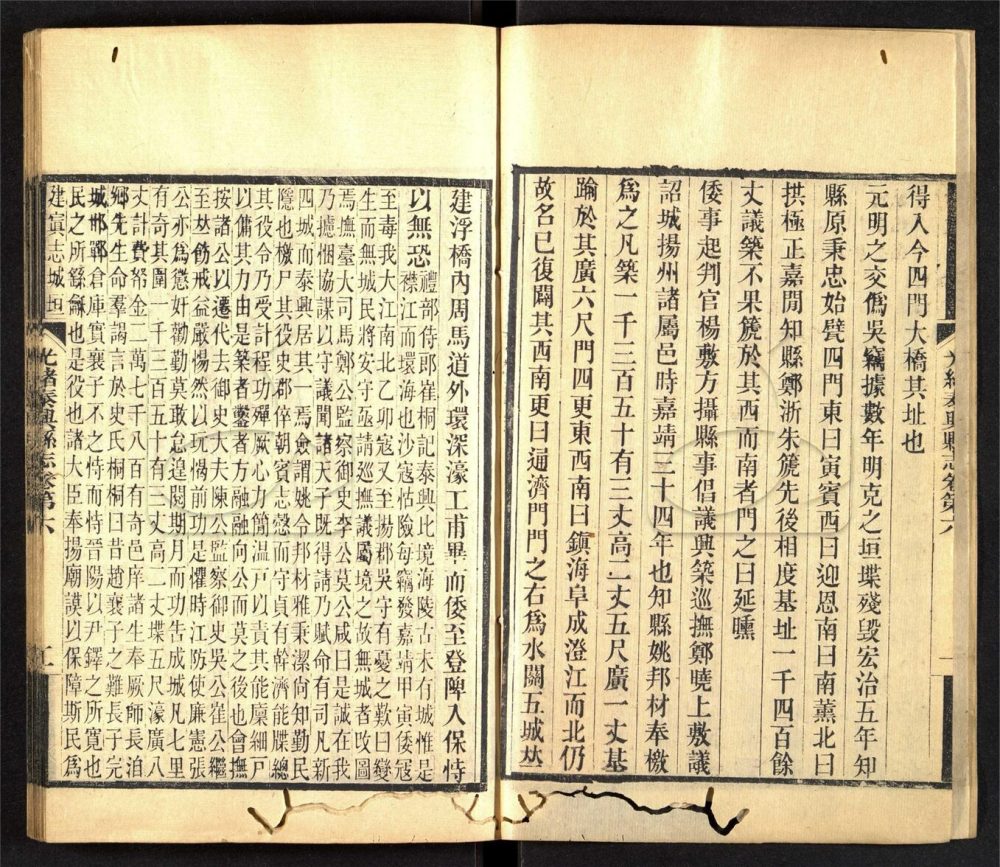 得入今四門大橋其址也
元明之交爲吳竊據數年明克之垣堞殘毀宏治五年知
縣原秉忠始甓四門東曰寅賓西曰迎恩南曰南薰北曰
拱極正嘉間知縣鄭浙朱箎先後相度基址一千四百餘
丈議築不果箎於其西而南者門之曰延曛
倭事起判官楊敷方攝縣事倡議興築巡撫鄭曉上敷議
詔城揚州諸屬邑時嘉靖三十四年也知縣姚邦材奉檄
爲之凡築一千三百五十有三丈高二丈五尺廣一丈基
踰於其廣六尺門四更東西南曰鎮海阜成澄江而北仍
故名已復闢其西南更曰通濟門門之右爲水關五城夶
建浮橋內周馬道外環深濠工甫畢而倭至登陴入保恃
以無恐
禮部侍郎崔桐記泰興比境海陵古未有城惟是
襟江而環海也沙寇怙險每竊發嘉靖甲寅倭寇
至毒我大江南北乙卯寇又至揚郡吳守有憂之歎曰變
生而無城民將安守亟請巡撫議屬境之故無城者攻圖
焉撫臺大司馬鄭公監察御史李公莫公咸曰是誠在我
乃攄悃協謀以守議聞諸天子既得請乃賦命有司凡新
四城而泰興居其一焉僉謂姚令邦材雅秉潔尚知勤民
隱也檄尸其役史郡倅朝賓志愨而守貞有幹濟能牒總
其役令乃受計程功殫厥心力簡温戸以責其能廩細戸
以傭其力由是築者鑿者方融融向公而莫之後也會撫
按諸公以遷代去御史大夫陳公監察御史吳公崔公繼
至夶飭戒益嚴惕然以玩愒前功是懼時江防使廉憲張
公亦爲懲奸勸勤莫敢怠遑閱期月而功告成城凡七里
有奇其圍一千三百五十有三丈高二丈堞五尺濠廣八
丈計費帑金二萬七千八百有奇邑庠諸生奉厥師長洎
鄉先生命羣謁言於史氏桐桐曰昔趙襄子之難長子完
城邯鄲倉庫實襄子不之恃而恃晉陽以尹鐸之所寬也
民之所繇龢也是役也諸大臣奉揚廟謨以保障斯民爲
建寘志城垣
光緒泰興縣志卷第六